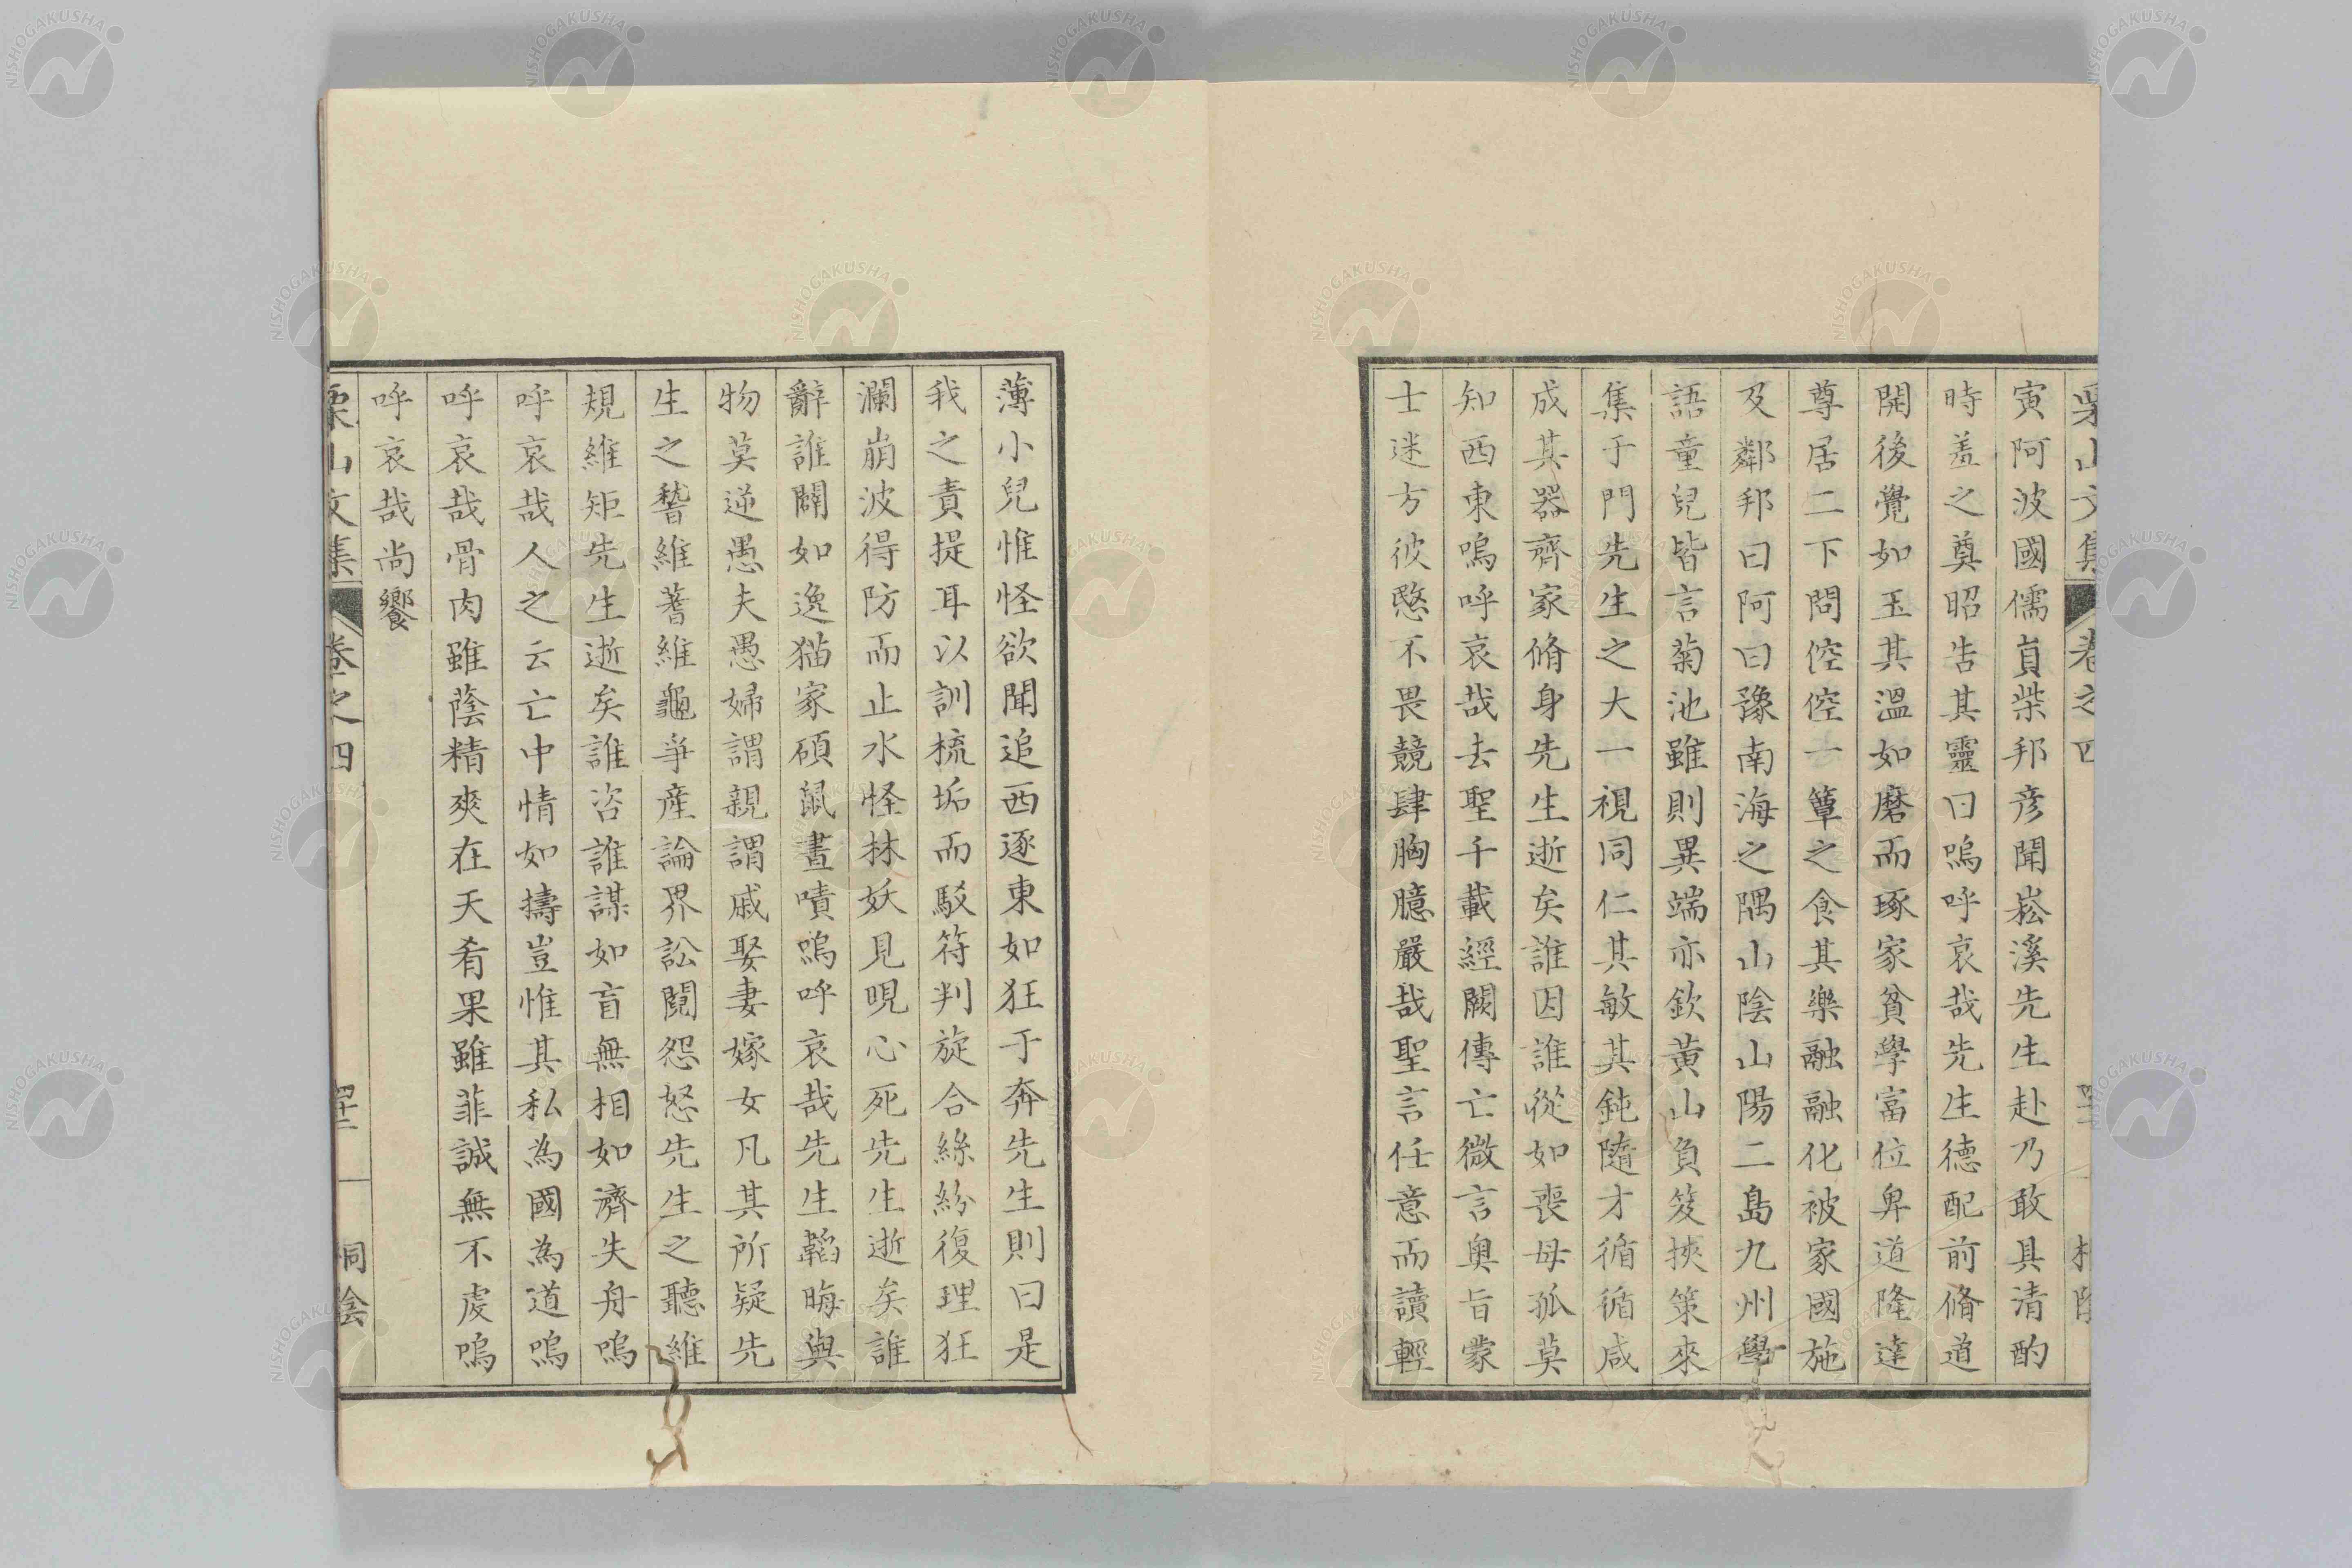 寅阿波國儒貟柴邦彦聞崧溪先生赴乃敢具清酌
時羞之奠昭告其靈曰嗚呼哀哉先生德配前脩道
開後覺如玉其溫如磨而琢家貧學富位卑道隆達
尊居二下問倥倥一簞之食其樂融融化被家國施
及鄰邦曰阿曰豫南海之隅山陰山陽二島九州學
語童兒皆言菊池雖則異端亦欽黃山負笈挾策來
集于門先生之大一視同仁其敏其鈍隨才循循咸
成其器齊家脩身先生逝矣誰因誰從如喪母孤莫
知西東嗚呼哀哉去聖千載經闕傳亡微言奧旨蒙
士迷方彼愍不畏競肆胸臆嚴哉聖言任意而讀輕
薄小兒惟怪欲聞追西逐東如狂于奔先生則曰是
我之責提耳以訓梳垢而駁符判旋合絲紛復理狂
瀾崩波得防而止水怪林妖見晛心死先生逝矣誰
辭誰闢如逸猫家碩鼠晝嘖嗚呼哀哉先生韜晦與
物莫逆愚夫愚婦謂親謂戚娶妻嫁女凡其所疑先
生之謦維蓍維龜爭産論界訟鬩怨怒先生之聽維
規維矩先生逝矣誰咨誰謀如盲無相如濟失舟嗚
呼哀哉人之云亡中情如擣豈惟其私為國為道嗚
呼哀哉骨肉雖蔭精爽在天肴果雖菲誠無不虔嗚
呼哀哉尚饗
栗山文集 卷之四 桐陰